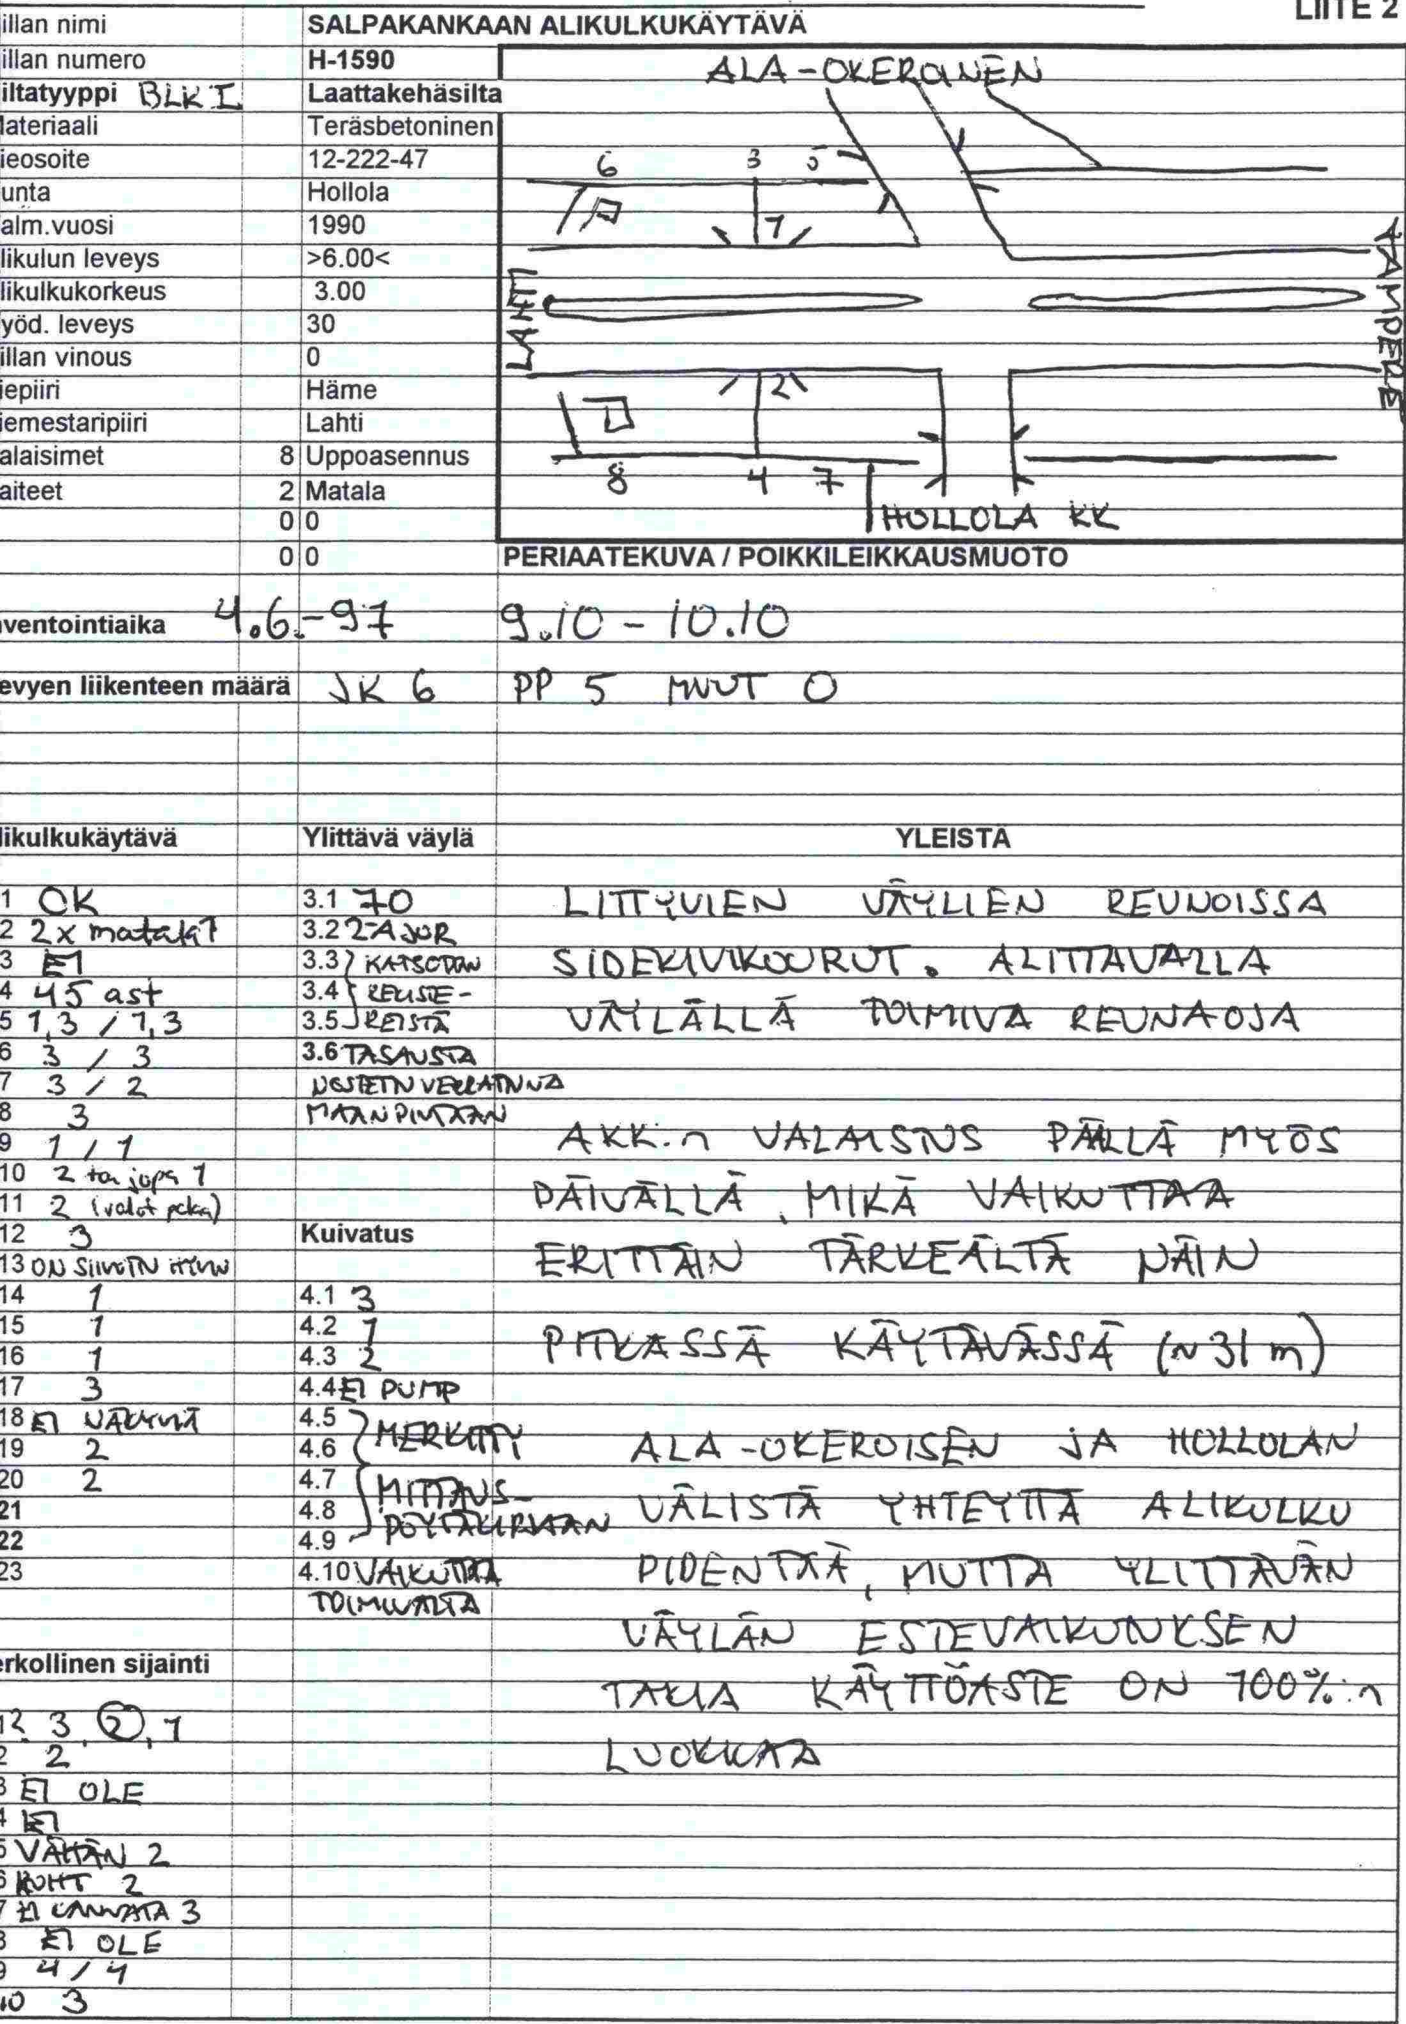 LIITE 2
illan nimi SALPAKANKAAN ALIKULKUKÄYTÄVÄ
illan numero H-1590
iltatyyppi BLK I Laattakehäsilta
lateriaali Teräsbetoninen
ieosoite 12-222-47
unta Hollola
alm.vuosi 1990
likulun leveys >6.00<
likulkukorkeus 3.00
yöd. leveys 30
illan vinous 0
iepiiri Häme
iemestaripiiri Lahti
alaisimet 8 Uppoasennus
aiteet 2 Matala
0 0
0 0
ALA-OKEROINEN
6 3 5
1
LAHTI
TAMPERE
2
8 4 7
HOLLOLA KK
PERIAATEKUVA / POIKKILEIKKAUSMUOTO
nventointiaika 4.6.-97 9.10 - 10.10
evyen liikenteen määrä JK 6 PP 5 MUUT 0
likulkukäytävä Ylittävä väylä YLEISTÄ
1 OK
2 2x matala?
3 EI
4 45 ast
5 1,3 / 1,3
6 3 / 3
7 3 / 2
8 3
9 1 / 1
10 2 tai jopa 1
11 2 (valot
12 3
13 ON SIIVOTTU HYVIN
14 1
15 1
16 1
17 3
18 EI NÄKYVIÄ
19 2
20 2
21
22
23
3.1 70
3.2 2-AJOR
3.3 KATSOTAAN
3.4 REKISTE-
3.5 REISTÄ
3.6 TASAUSTA
NOSTETTU VERRATTUNA
MAANPINTAAN
Kuivatus
4.1 3
4.2 1
4.3 2
4.4 EI PUMP
4.5
4.6 MERKITTY
4.7 MITTAUS-
4.8
4.9 PÖYTÄKIRJAAN
4.10 VAIKUTTAA
TOIMIVALTA
LIITTYVIEN VÄYLIEN REUNOISSA
SIDEKIVIKOURUT. ALITTAVALLA
VÄYLÄLLÄ TOIMIVA REUNAOJA
AKK:n VALAISTUS PÄÄLLÄ MYÖS
PÄIVÄLLÄ, MIKÄ VAIKUTTAA
ERITTÄIN TÄRKEÄLTÄ NÄIN
PITKÄSSÄ KÄYTÄVÄSSÄ (~31 m)
ALA-OKEROISEN JA HOLLOLAN
VÄLISTÄ YHTEYTTÄ ALIKULKU
PIDENTÄÄ, MUTTA YLITTÄVÄN
VÄYLÄN ESTEVAIKUTUKSEN
TAKIA KÄYTTÖASTE ON 100%:n
LUOKKAA
erkollinen sijainti
12. 3, 2, 1
2 2
3 EI OLE
4 EI
5 VÄHÄN 2
6 KOHT 2
7 EI KANNATA 3
8 EI OLE
9 4 / 4
10 3